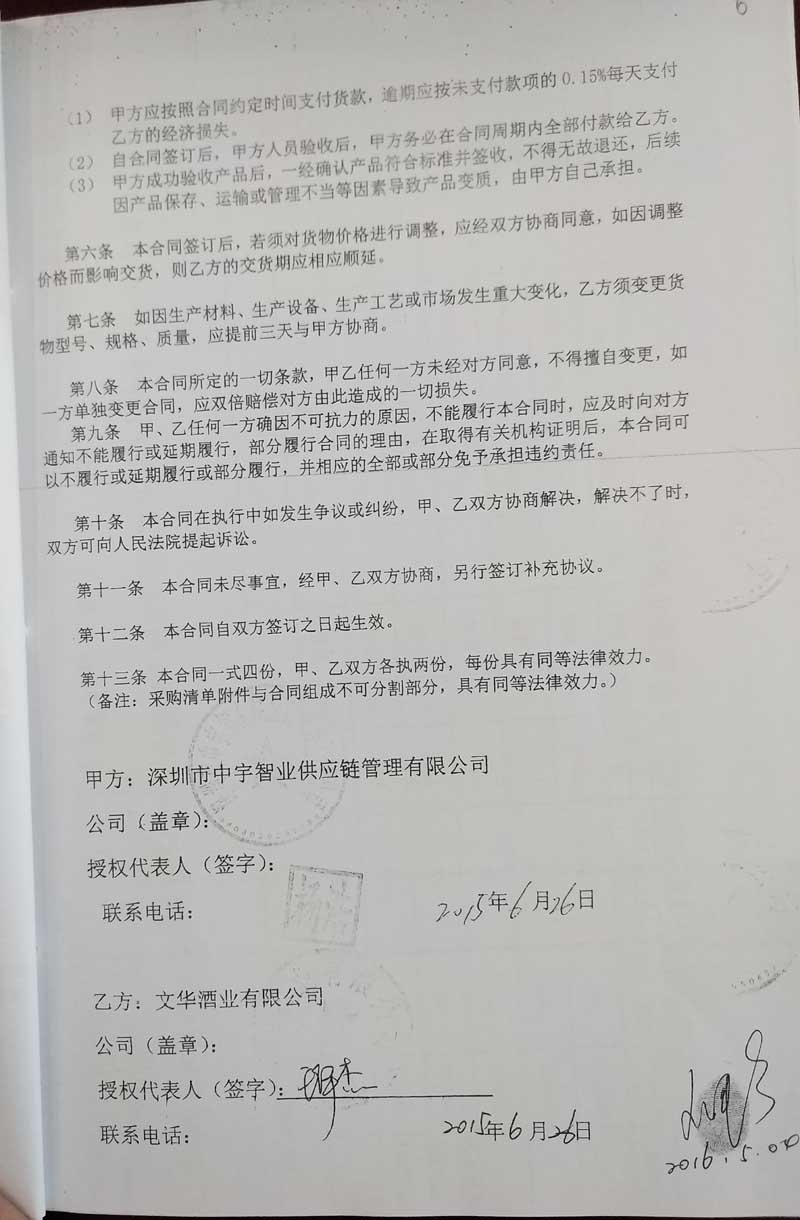 6
（1） 甲方应按照合同约定时间支付货款，逾期应按未支付款项的0.15%每天支付
乙方的经济损失。
（2） 自合同签订后，甲方人员验收后，甲方务必在合同周期内全部付款给乙方。
（3） 甲方成功验收产品后，一经确认产品符合标准并签收，不得无故退还，后续
因产品保存、运输或管理不当等因素导致产品变质，由甲方自己承担。
第六条 本合同签订后，若须对货物价格进行调整，应经双方协商同意，如因调整
价格而影响交货，则乙方的交货期应相应顺延。
第七条 如因生产材料、生产设备、生产工艺或市场发生重大变化，乙方须变更货
物型号、规格、质量，应提前三天与甲方协商。
第八条 本合同所定的一切条款，甲乙任何一方未经对方同意，不得擅自变更，如
一方单独变更合同，应双倍赔偿对方由此造成的一切损失。
第九条 甲、乙任何一方确因不可抗力的原因，不能履行本合同时，应及时向对方
通知不能履行或延期履行，部分履行合同的理由，在取得有关机构证明后，本合同可
以不履行或延期履行或部分履行，并相应的全部或部分免予承担违约责任。
第十条 本合同在执行中如发生争议或纠纷，甲、乙双方协商解决，解决不了时，
双方可向人民法院提起诉讼。
第十一条 本合同未尽事宜，经甲、乙双方协商，另行签订补充协议。
第十二条 本合同自双方签订之日起生效。
第十三条 本合同一式四份，甲、乙双方各执两份，每份具有同等法律效力。
（备注：采购清单附件与合同组成不可分割部分，具有同等法律效力。）
甲方：深圳市中宇智业供应链管理有限公司
公司（盖章）：
授权代表人（签字）：
联系电话：
2015年6月26日
乙方：文华酒业有限公司
公司（盖章）：
授权代表人（签字）：
联系电话：
2015年6月26日
2016.5.